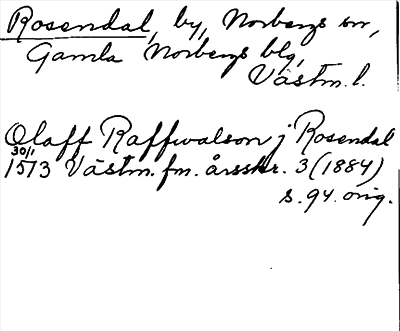 Rosendal, by, Norbergs sn,
Gamla Norbergs blg,
Västm. l.
Olaff Raffwalson j Rosendal
30/1 1573 Västm. fm. årsskr. 3 (1884)
s. 94. orig.